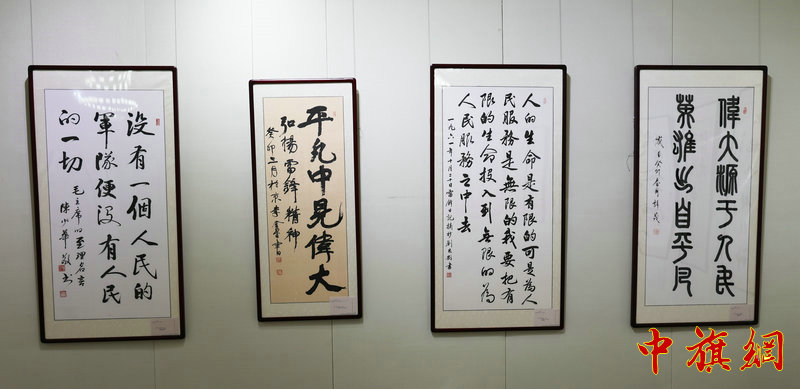 没有一個人民的
軍隊便没有人民
的一切
毛主席的至理名言
陳小華敬书
平凡中見偉大
弘揚雷鋒精神
癸卯三月於京李
人的生命是有限的可是為人
民服務是無限的我要把有
限的生命投入到無限的為
人民服務之中去
一九六一年十月二十日雷鋒日記摘抄劉
偉大源于人民
英雄出自平凡
癸卯春月
中旗網